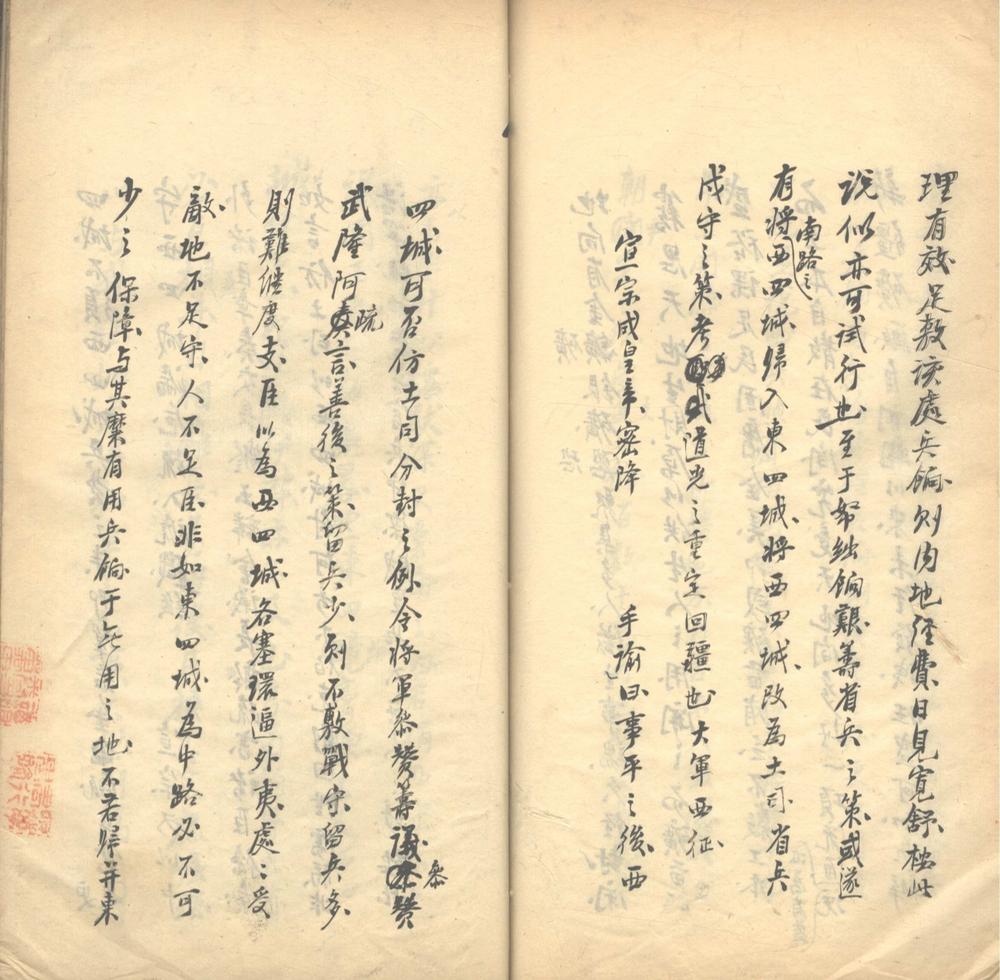 理有效足敷該處兵餉則內地經費日見寬舒核此
說似亦可試行也至于帑絀餉艱籌省兵之策或遂
有將南路之西四城歸入東四城將西四城改為土司省兵
戍守之策考道光之重定回疆也大軍西征
宣宗成皇帝密降 手諭曰事平之後西
四城可否仿土司分封之例令將軍參贊籌議參贊
武隆阿疏言善後之策留兵少則不敷戰守留兵多
則難繼度支臣以為西四城各塞環逼外夷處處受
敵地不足守人不足臣非如東四城為中路必不可
少之保障与其糜有用兵餉于無用之地不若歸并東